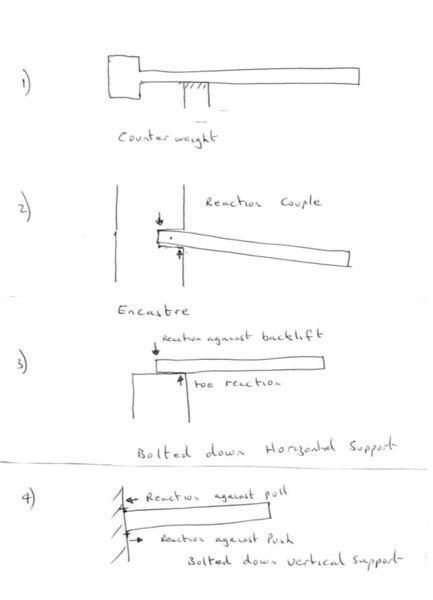 1)
Counter weight
2)
Reaction Couple
Encastre
Reaction against backlift
3)
toe reaction
Bolted down Horizontal Support
4)
Reaction against pull
Reaction against Push
Bolted down vertical support